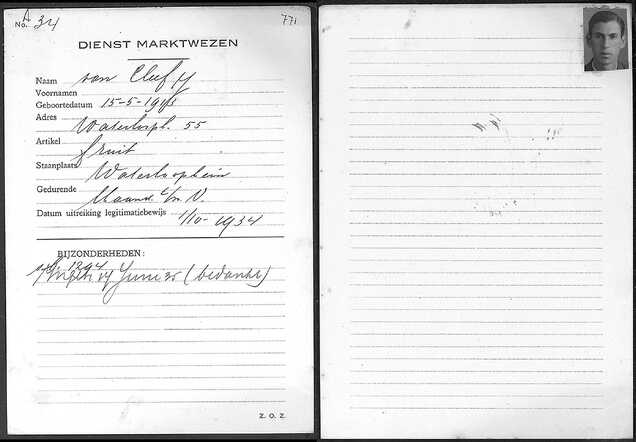 No. A 34
771
DIENST MARKTWEZEN
Naam van Cleef
Voornamen
Geboortedatum 15-5-1913
Adres Waterloopl. 55
Artikel fruit
Staanplaats Waterlooplein
Gedurende Maand t/m V.
Datum uitreiking legitimatiebewijs 1/10-1934
BIJZONDERHEDEN:
1294
Juni 35 (bedankt)
Z.O.Z.